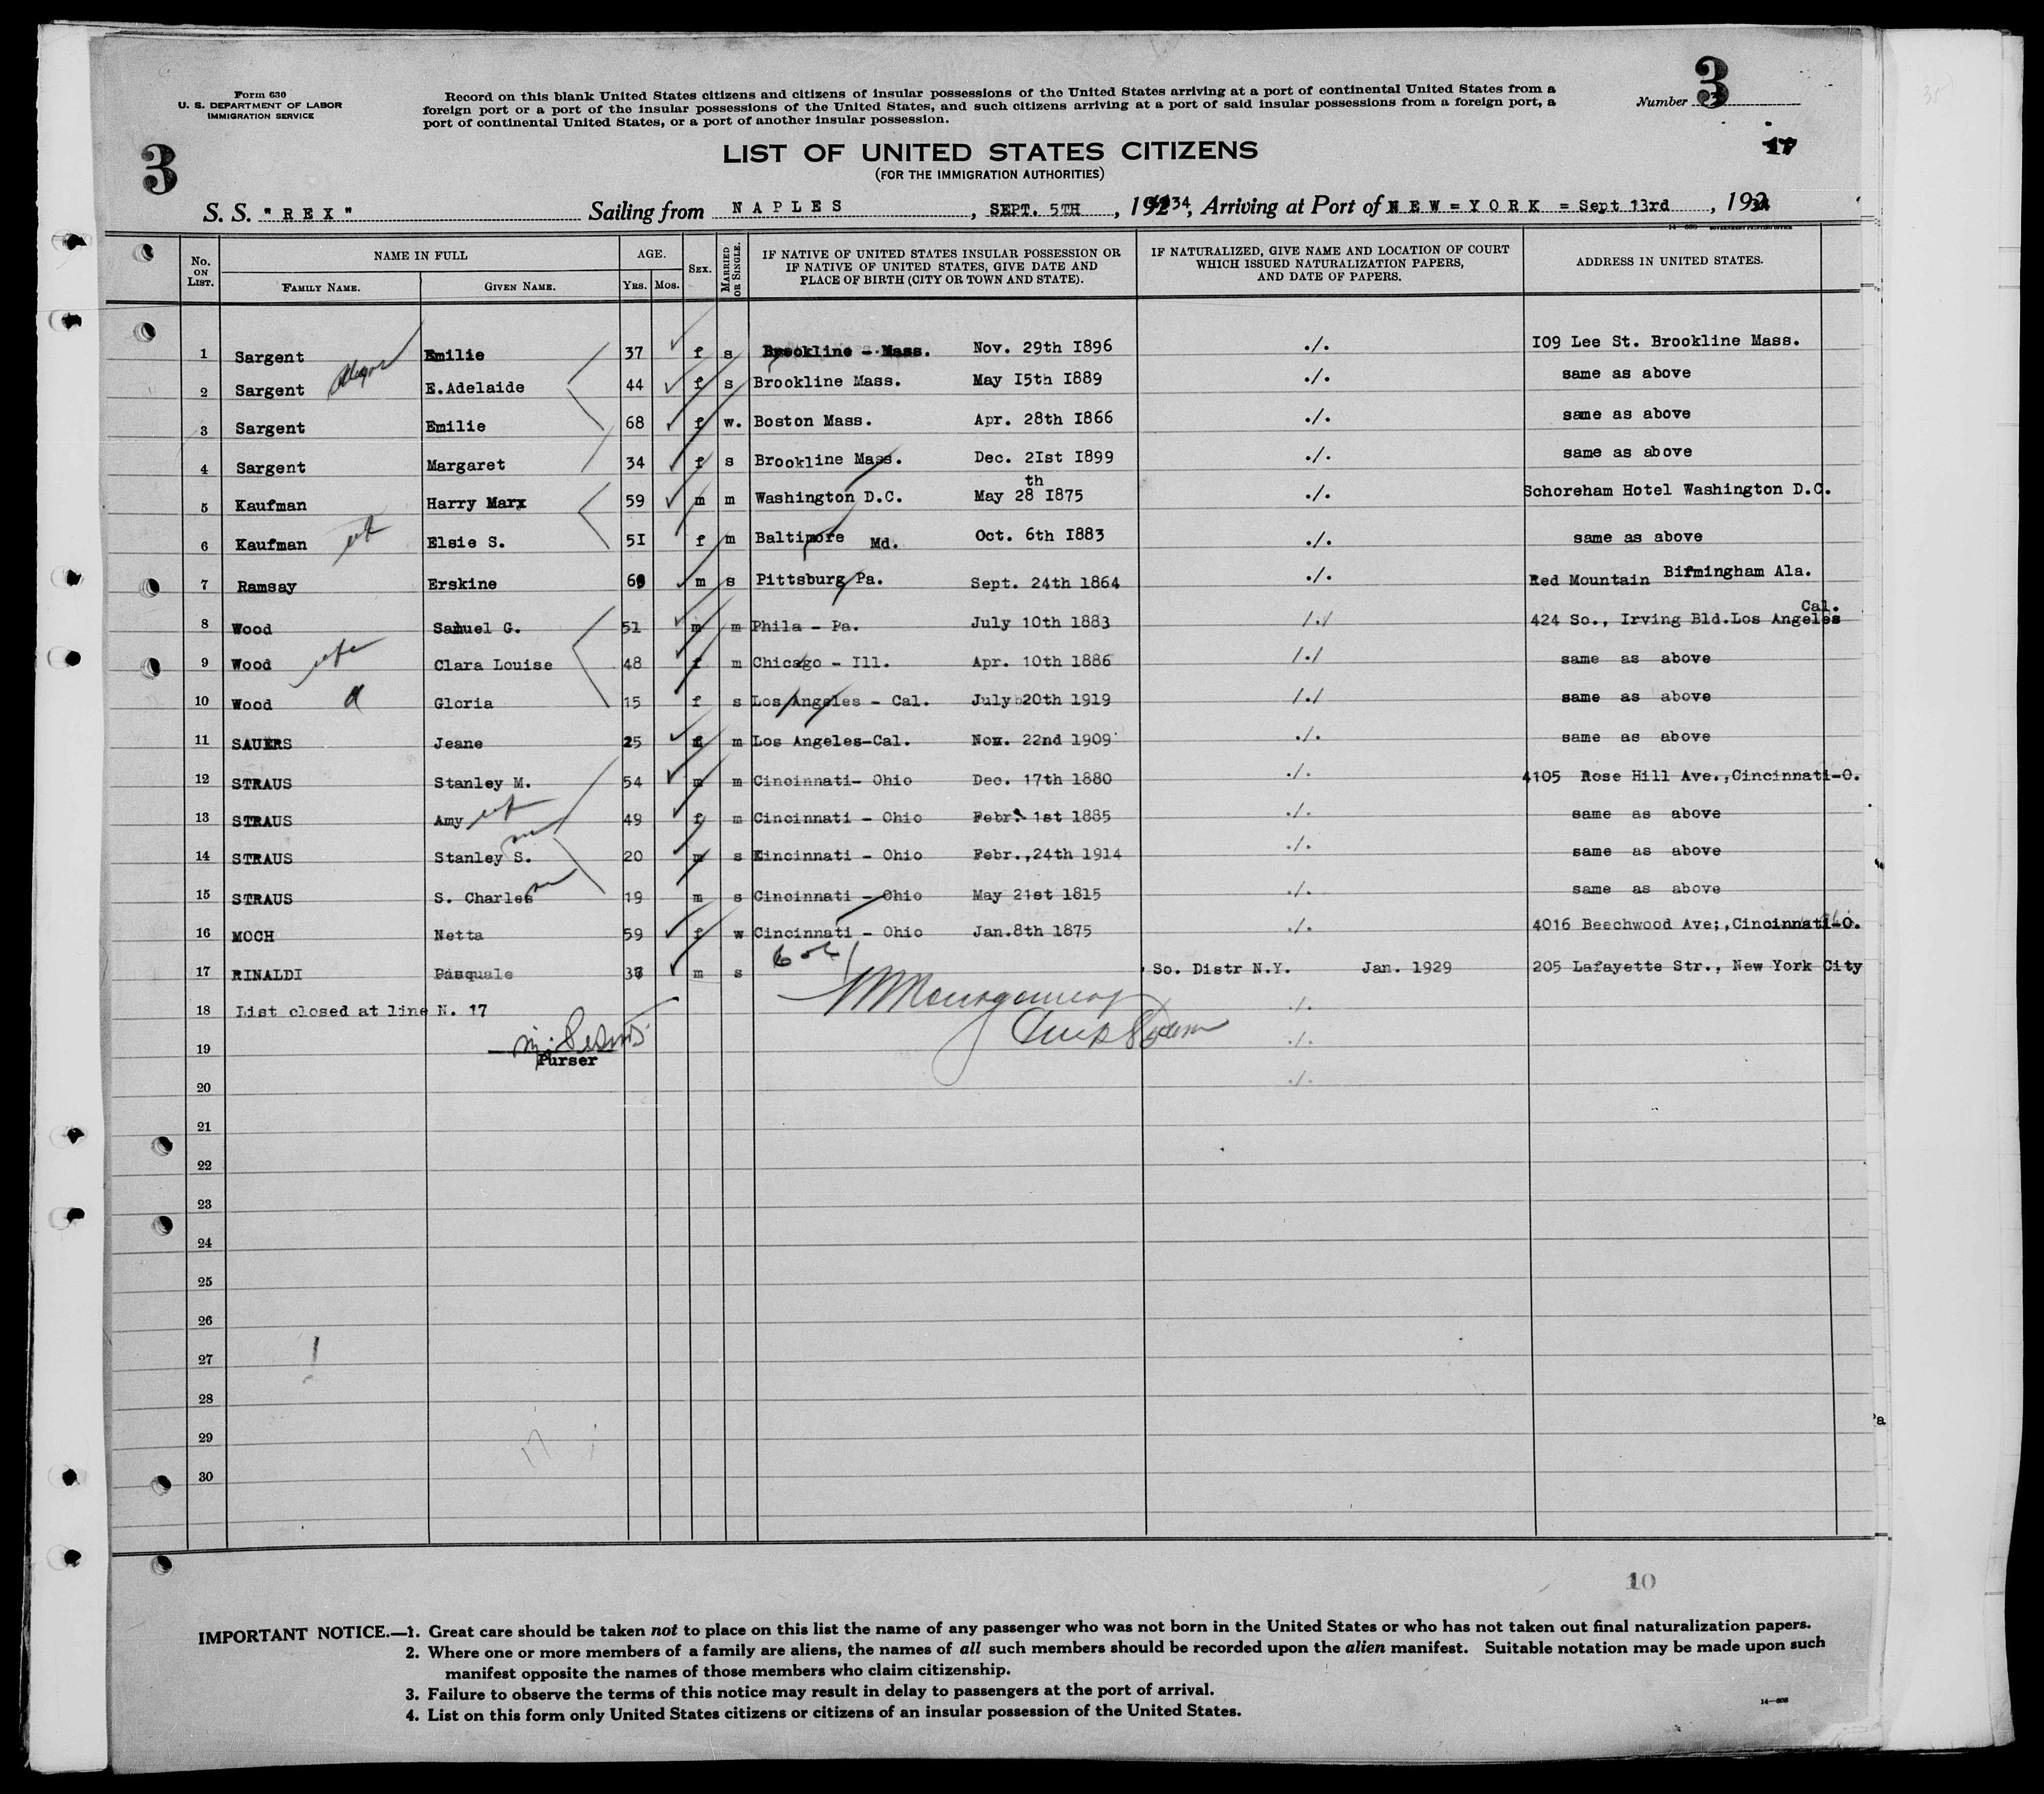 Form 630
U. S. DEPARTMENT OF LABOR
IMMIGRATION SERVICE
Record on this blank United States citizens and citizens of insular possessions of the United States arriving at a port of continental United States from a
foreign port or a port of the insular possessions of the United States, and such citizens arriving at a port of said insular possessions from a foreign port, a
port of continental United States, or a port of another insular possession.
Number 3
3
17
LIST OF UNITED STATES CITIZENS
(FOR THE IMMIGRATION AUTHORITIES)
S. S. "REX" Sailing from NAPLES, SEPT. 5TH, 1934, Arriving at Port of NEW=YORK = Sept 13rd, 1934
No. ON LIST. NAME IN FULL AGE. SEX. MARRIED OR SINGLE. IF NATIVE OF UNITED STATES INSULAR POSSESSION OR IF NATIVE OF UNITED STATES, GIVE DATE AND PLACE OF BIRTH (CITY OR TOWN AND STATE). IF NATURALIZED, GIVE NAME AND LOCATION OF COURT WHICH ISSUED NATURALIZATION PAPERS, AND DATE OF PAPERS. ADDRESS IN UNITED STATES.
FAMILY NAME. GIVEN NAME. YRS. MOS.
1 Sargent Emilie 37 f s Brookline - Mass. Nov. 29th 1896 ./. 109 Lee St. Brookline Mass.
2 Sargent E.Adelaide 44 f s Brookline Mass. May 15th 1889 ./. same as above
3 Sargent Emilie 68 f w. Boston Mass. Apr. 28th 1866 ./. same as above
4 Sargent Margaret 34 f s Brookline Mass. Dec. 21st 1899 ./. same as above
5 Kaufman Harry Marx 59 m m Washington D.C. May 28th 1875 ./. Schoreham Hotel Washington D.C.
6 Kaufman Elsie S. 51 f m Baltimore Md. Oct. 6th 1883 ./. same as above
7 Ramsay Erskine 69 m s Pittsburg Pa. Sept. 24th 1864 ./. Red Mountain Birmingham Ala.
8 Wood Samuel G. 51 m m Phila - Pa. July 10th 1883 /./ 424 So., Irving Bld.Los Angeles Cal.
9 Wood Clara Louise 48 f m Chicago - Ill. Apr. 10th 1886 /./ same as above
10 Wood Gloria 15 f s Los Angeles - Cal. July 20th 1919 /./ same as above
11 SAUERS Jeane 25 f m Los Angeles-Cal. Nov. 22nd 1909 ./. same as above
12 STRAUS Stanley M. 54 m m Cincinnati- Ohio Dec. 17th 1880 ./. 4105 Rose Hill Ave.,Cincinnati-O.
13 STRAUS Amy 49 f m Cincinnati - Ohio Febr. 1st 1885 ./. same as above
14 STRAUS Stanley S. 20 m s Cincinnati - Ohio Febr.,24th 1914 ./. same as above
15 STRAUS S. Charles 19 m s Cincinnati - Ohio May 21st 1815 ./. same as above
16 MOCH Netta 59 f w Cincinnati - Ohio Jan.8th 1875 ./. 4016 Beechwood Ave;,Cincinnati-O.
17 RINALDI Pasquale m s So. Distr N.Y. Jan. 1929 205 Lafayette Str., New York City
18 List closed at line N. 17 ./.
19 ./.
Purser
20 ./.
21
22
23
24
25
26
27
28
29
30
17
10
IMPORTANT NOTICE.—1. Great care should be taken not to place on this list the name of any passenger who was not born in the United States or who has not taken out final naturalization papers.
2. Where one or more members of a family are aliens, the names of all such members should be recorded upon the alien manifest. Suitable notation may be made upon such
manifest opposite the names of those members who claim citizenship.
3. Failure to observe the terms of this notice may result in delay to passengers at the port of arrival.
4. List on this form only United States citizens or citizens of an insular possession of the United States.